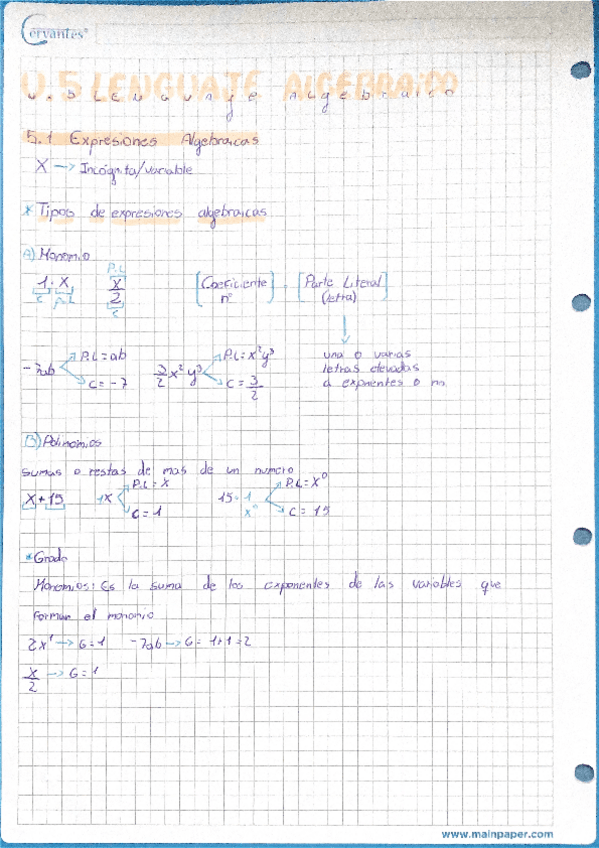 Cervantes®
U.5 LENGUAJE ALGEBRAICO
5.1 Expresiones Algebraicas
X → Incógnita/variable
* Tipos de expresiones algebraicas
A) Monomio
1 · X
C P.L
P.L
X/2
C
[Coeficiente nº] · [Parte Literal (letra)]
-7ab
P.L = ab
C = -7
3/2 x² y³
P.L = x² y³
C = 3/2
una o varias
letras elevadas
a exponentes o nn
B) Polinomios
sumas o restas de mas de un numero
X + 15
1X
P.L = X
C = 1
15 · 1
x⁰
P.L = X⁰
C = 15
* Grado
Monomios: Es la suma de los exponentes de las variables que
forman el monomio
2x¹ → G = 1 -7ab → G = 1+1 = 2
X/2 → G = 1
www.mainpaper.com